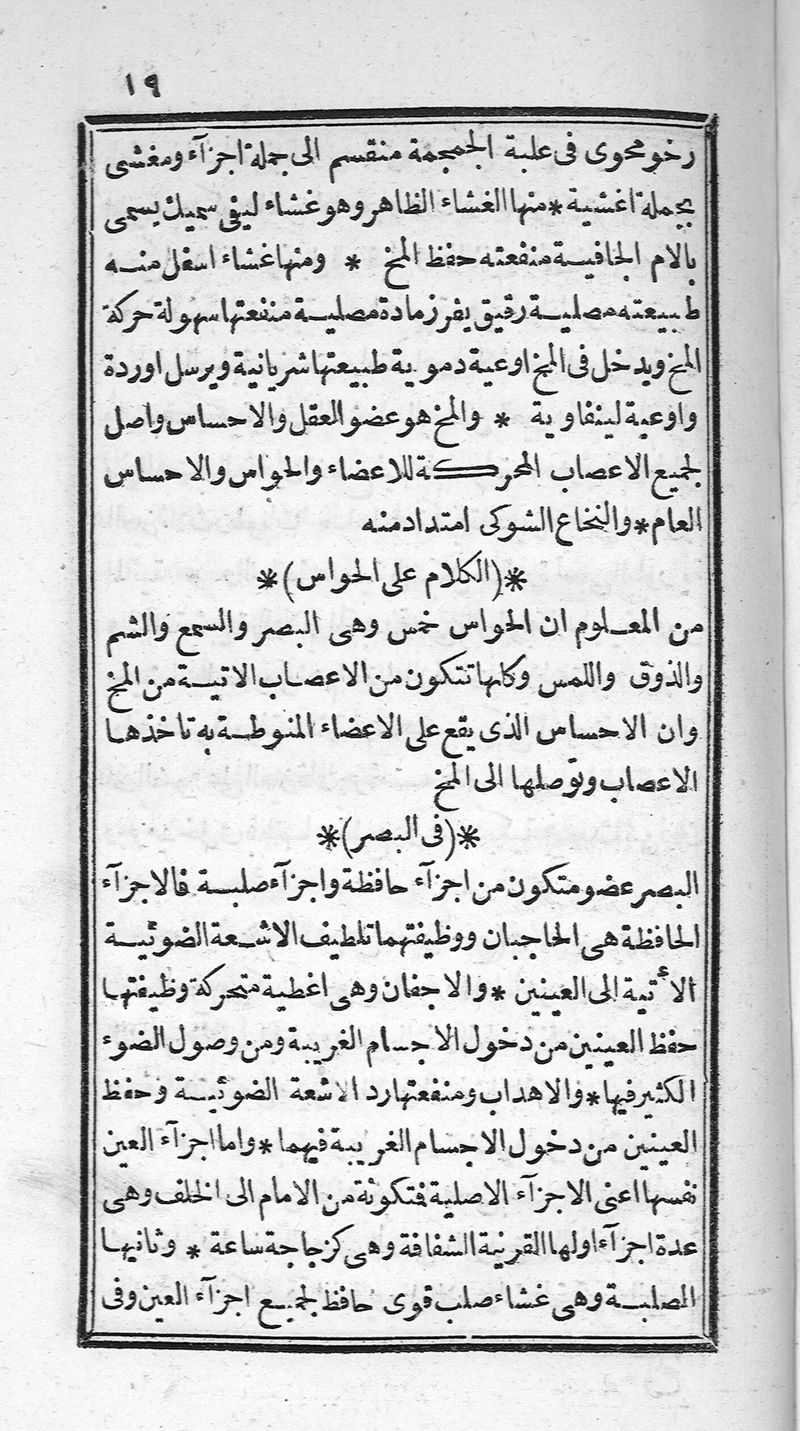 ١٩
رخو محوى فى علبة الجمجمة منقسم الى جملة اجزآء ومغشى
بجملة اغشية * منها الغشاء الظاهر وهو غشاء ليفى سميك يسمى
بالام الجافيـة منفعته حفظ المخ * ومنها غشاء اسفل منـه
طبيعته مصليـة رقيق يفرز مادة مصليـة منفعتها سهولة حركة
المخ ويدخل فى المخ اوعية دموية طبيعتها شريانية ويرسل اوردة
واوعية لينفاوية * والمخ هو عضو العقل والاحساس واصل
لجميع الاعصاب المحركـة للاعضاء والحواس والاحساس
العام * والنخاع الشوكى امتداد منه
*(الكلام على الحواس)*
من المعـلوم ان الحواس خمس وهى البصر والسمع والشم
والذوق واللمس وكلها تتكون من الاعصـاب الاتيـة من المخ
وان الاحساس الذى يقع على الاعضاء المنوطـة به تاخذهـا
الاعصاب وتوصلها الى المخ
*(فى البصر)*
البصر عضو متكون من اجزآء حافظة واجزآء صلبـة فالاجزآء
الحافظة هى الحاجبان ووظيفتهما تلطيف الاشـعة الضوئيـة
الأتية الى العينين * والاجفان وهى اغطية متحركة وظيفتهـا
حفظ العينين من دخول الاجسام الغريبة ومن وصول الضوء
الكثير فيها * والاهداب ومنفعتها رد الاشعة الضوئيـة وحفظ
العينين من دخول الاجسام الغريبة فيهما * واما اجزآء العين
نفسها اعنى الاجزآء الاصلية فتكونة من الامام الى الخلف وهى
عدة اجزآء اولها القرنية الشفافة وهى كزجاجة ساعة * وثانيهـا
الصلبـة وهى غشاء صلب قوى حافظ لجميـع اجزآء العين وفى